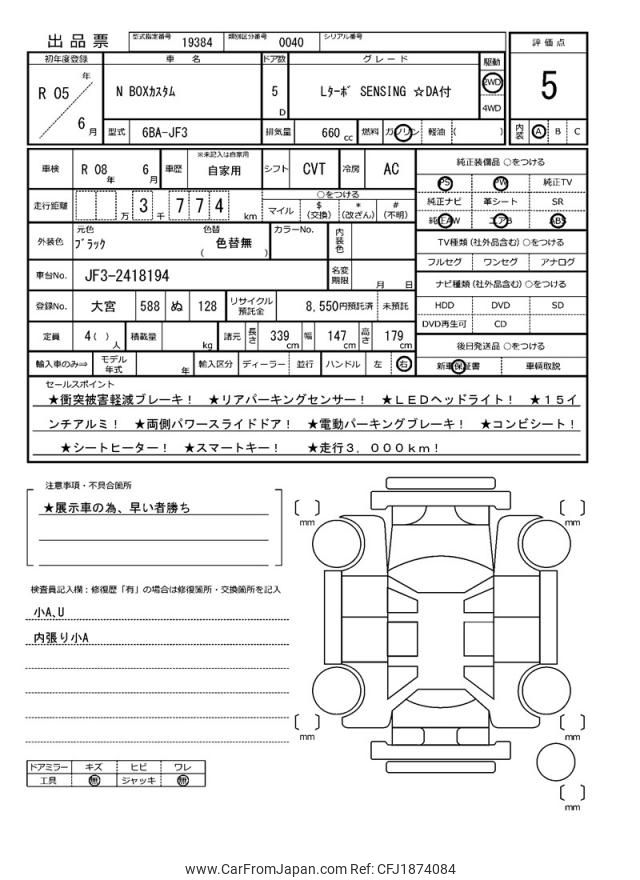 出品票 型式指定番号 19384 類別区分番号 0040 シリアル番号
初年度登録 車名 ドア数 グレード 駆動 評価点
R 05 年 6 月 N BOXカスタム 5 D Lターボ SENSING ☆DA付 2WD 4WD 5
型式 6BA-JF3 排気量 660 cc 燃料 ガソリン 軽油 ( ) 内装 A B C
車検 R 08 年 6 月 車歴 ※未記入は自家用 自家用 シフト CVT 冷房 AC
純正装備品 ○をつける
PS PW 純正TV
純正ナビ 革シート SR
純正AW エアB ABS
走行距離 万 3 千 7 7 4 km
○をつける
マイル $ (交換) * (改ざん) # (不明)
外装色 元色 ブラック 色替 色替無 ( ) カラーNo. 内装色
TV種類 (社外品含む) ○をつける
フルセグ ワンセグ アナログ
車台No. JF3-2418194 名変期限 月 日
ナビ種類 (社外品含む) ○をつける
HDD DVD SD
DVD再生可 CD
登録No. 大宮 588 ぬ 128 リサイクル預託金 8,550円預託済 未預託
定員 4( ) 人 積載量 kg 諸元 長さ 339 cm 幅 147 cm 高さ 179 cm
後日発送品 ○をつける
新車保証書 車輌取説
輸入車のみ⇒ モデル年式 年 輸入区分 ディーラー 並行 ハンドル 左 右
セールスポイント
★衝突被害軽減ブレーキ! ★リアパーキングセンサー! ★LEDヘッドライト! ★15イ
ンチアルミ! ★両側パワースライドドア! ★電動パーキングブレーキ! ★コンビシート!
★シートヒーター! ★スマートキー! ★走行3,000km!
注意事項・不具合箇所
★展示車の為、早い者勝ち
検査員記入欄:修復歴「有」の場合は修復箇所・交換箇所を記入
小A,U
内張り小A
mm
mm
mm
mm
mm
ドアミラー キズ ヒビ ワレ
工具 無 ジャッキ 無
www.CarFromJapan.com Ref: CFJ1874084